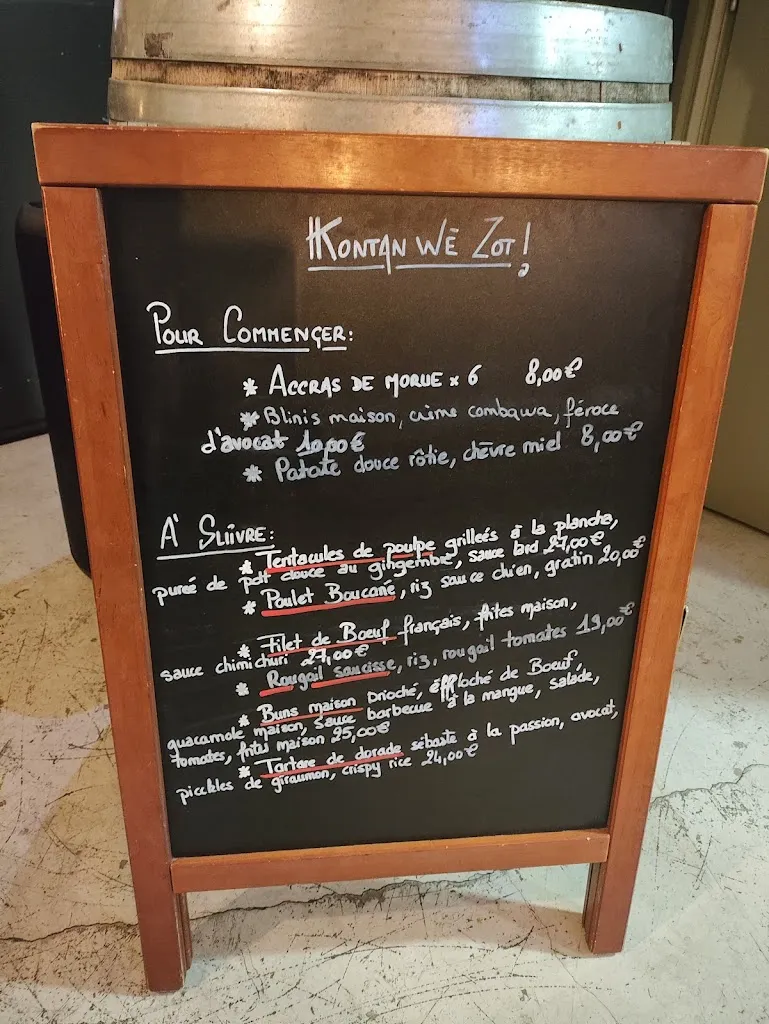 KONTAN WÉ ZOT !
POUR COMMENÇER:
* ACCRAS DE MORUE x 6 8,00€
* Blinis maison, crème combawa, féroce
d'avocat 10,00€
* Patate douce rôtie, chèvre miel 8,00€
A' SUIVRE:
* Tentacules de poulpe grilleés à la plancha,
pureé de pdt douce au gingembre, sauce bird 27,00€
* Poulet Boucané, riz sauce chien, gratin 20,00€
* Filet de Boeuf français, frites maison,
sauce chimichuri 27,00€
* Rougail saucisse, riz, rougail tomates 19,00€
* Buns maison brioché, éffiloché de Boeuf,
guacamole maison, sauce barbecue à la mangue, salade,
tomates, frites maison 25,00€
* Tartare de dorade sébaste à la passion, avocat,
picckles de giraumon, crispy rice 24,00€